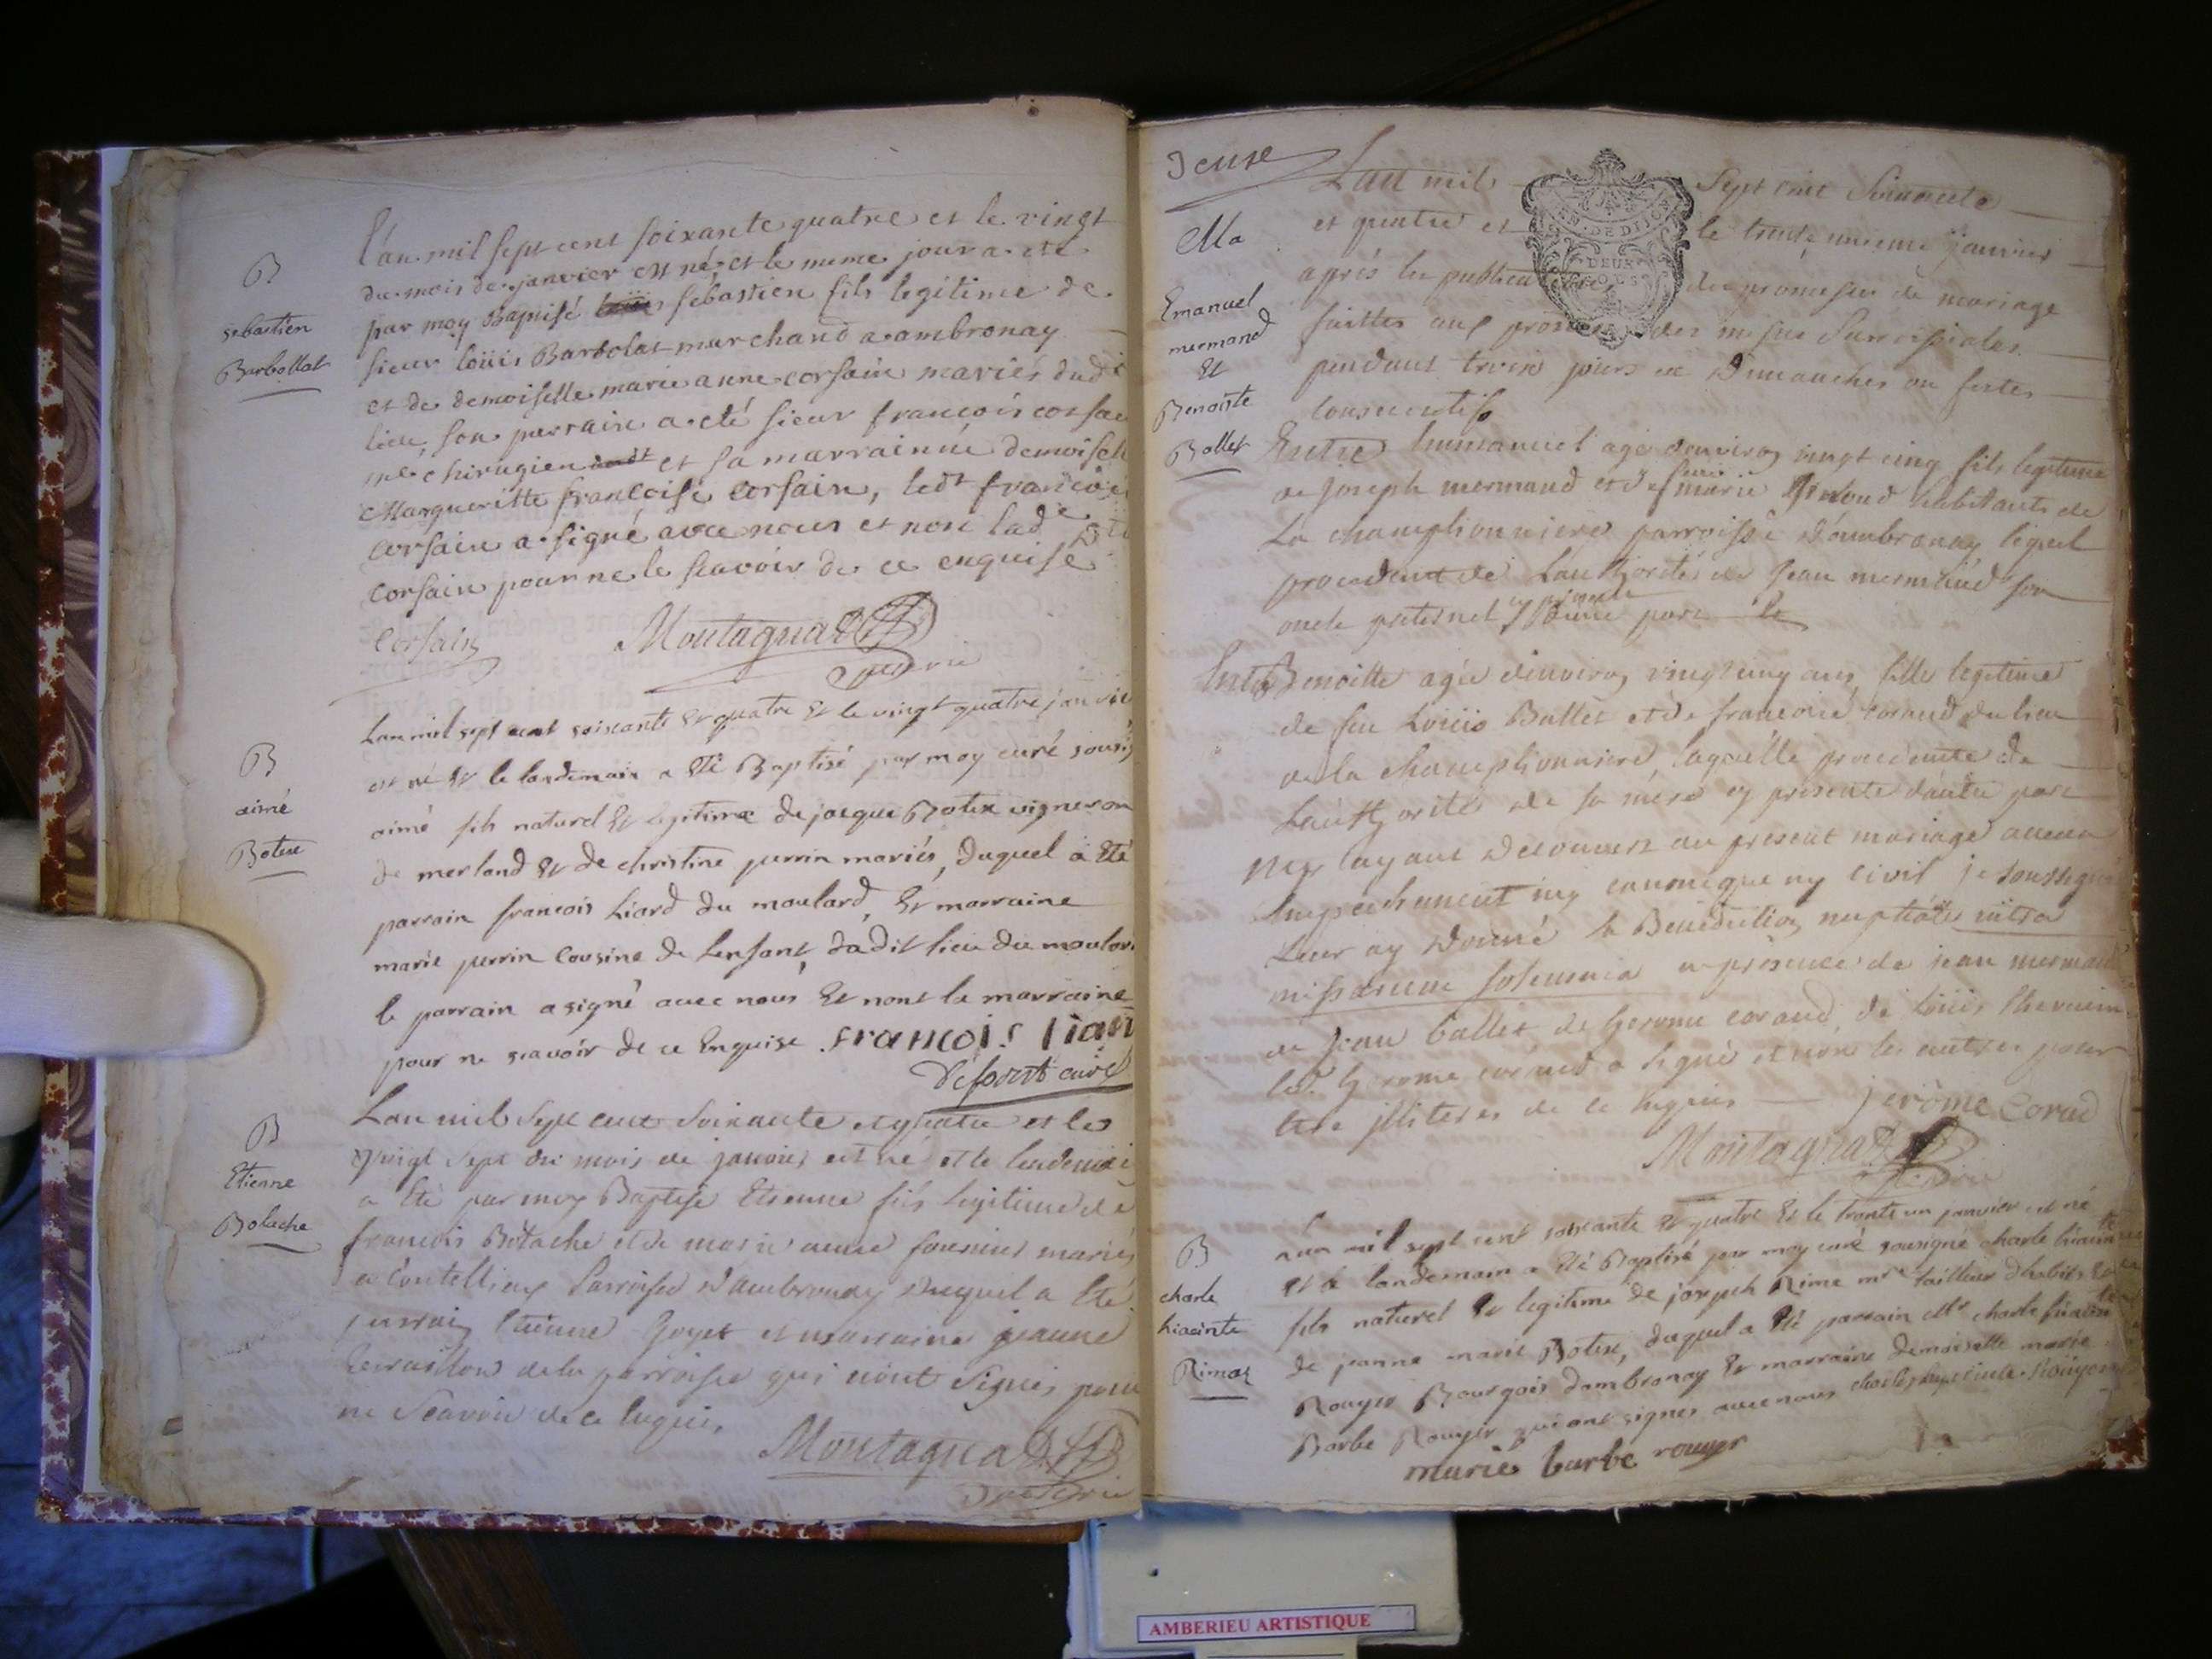 B
sebastien
Barbollat
L'an mil sept cent soixante quatre et le vingt
du mois de janvier est né et le meme jour a été
par moy Baptisé sébastien fils legitime de
sieur loüis Barbolat marchand a ambronay
et de demoiselle marie anne corsain mariés dud
lieu, son parrain a été sieur françois corsa
me chirugien et sa marrainne demoisel
Margueritte françoise corsain, ledt franco
corsain a signé avec nous et non lade
corsain pour ne le scavoir de ce enquise
Corsain Montagnat
B
aimé
Botex
Lan mil sept cent soixante et quatre et le vingt quatre janvie
est né et le landemain a été Baptisé par moy curé sousig
aimé fils naturel et legitime de jacque Botex vigneron
de merland et de christine perrin mariés, duquel a été
parrain francois liard du moulard, et marraine
marie perrin cousine de lenfant, dudit lieu du moular
le parrain a signé avec nous et nont la marraine
pour ne scavoir de ce enquise. francois liar
curé
B
Etienne
Bolache
Lan mil sept cent soixante et quatre et les
vingt sept du mois de janvier est né et le lendemai
a été par moy Baptisé Etienne fils legitime de
francois Bolache et de marie anne fournier mariés
a Coutellieux Parroisse d'ambronay duquel a été
parrain Etienne Goyet et marraine jeanne
de la parroisse qui n'ont signés pour
ne scavoir de ce enquis,
Montagnat
Deuxe
Ma
Emanuel
mermand
Et
Benoiste
Ballet
Lan mil sept cent soixante
et quatre et le trente unieme janvier
après les publications des promesses de mariage
faittes aux prosnes des messes Parroissiales
pendant trois jours de Dimanches ou festes
consecutifs
DE DIJON
DEUX
SOLS
Entre Emmanuel agé d'environ vingt cinq fils legitime
de joseph mermand et de marie habitants de
La championniere parroisse d'ambronay lequel
procedant de L'authorité de Jean mermand son
oncle paternel cy présente d'une part
Et Benoitte agée d'environ vingt cinq ans, fille legitime
de feu Loüis Ballet et de francoise coraud du lieu
de la championniere, laquelle procedante de
L'authorité de sa mére cy présente d'autre part
N'y ayant decouvert au present mariage aucun
Empechement ny canonique ny civil je soussigné
Leur ay donné la Benediction nuptiale intra
missarum solemnia en présence de jean mermand
de jean Ballet, de Gerome coraud, de Loüis thevenin
led. Gerome coraud a signé et non les autres pour
etre illiteres de ce Enquis jerôme Corad
Montagnat
B
charle
hiacinte
Rimaz
Lan mil sept cent soixante et quatre et le trente un janvier est né
et le landemain a été Baptisé par moy curé sousigné charle hiacinte
fils naturel et legitime de joseph Rime mre tailleur dhabits et
de janne marie Botex, duquel a été parrain Mr charle hiacinte
Rouyer Bourgois dambronay et marraine demoiselle marie
Barbe Rouyer qui ont signes avec nous charles hyacinte Rouyer
marie barbe rouyer
AMBERIEU ARTISTIQUE